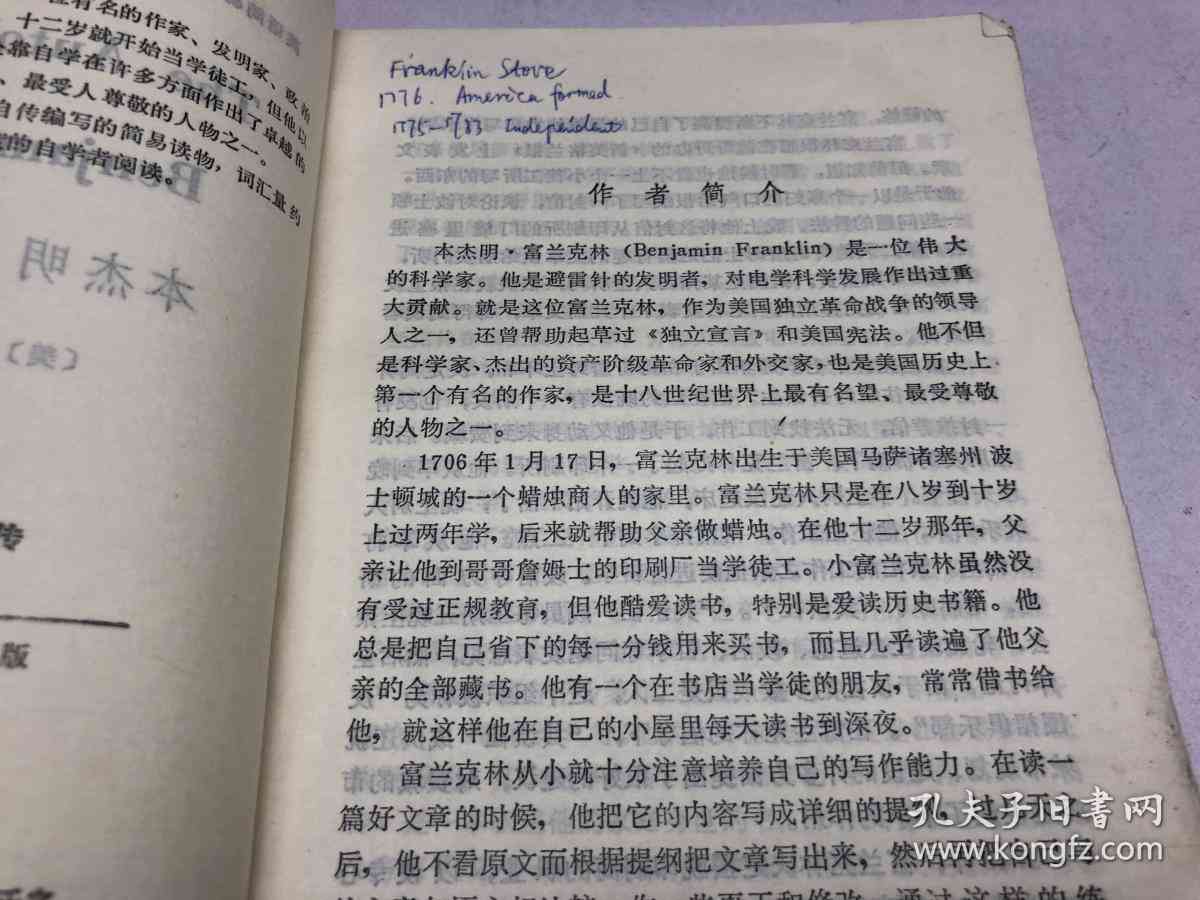 有名的作家、发明家、政治
十二岁就开始当学徒工，但他以
靠自学在许多方面作出了卓越的
、最受人尊敬的人物之一。
自传编写的简易读物，词汇量约
的自学者阅读。
Benj
本杰明
〔美〕
传
版
Franklin Stove
1776. America formed
1775-1783 Independent
作者简介
本杰明·富兰克林（Benjamin Franklin）是一位伟大
的科学家。他是避雷针的发明者，对电学科学发展作出过重
大贡献。就是这位富兰克林，作为美国独立革命战争的领导
人之一，还曾帮助起草过《独立宣言》和美国宪法。他不但
是科学家、杰出的资产阶级革命家和外交家，也是美国历史上
第一个有名的作家，是十八世纪世界上最有名望、最受尊敬
的人物之一。
1706年1月17日，富兰克林出生于美国马萨诸塞州波
士顿城的一个蜡烛商人的家里。富兰克林只是在八岁到十岁
上过两年学，后来就帮助父亲做蜡烛。在他十二岁那年，父
亲让他到哥哥詹姆士的印刷厂当学徒工。小富兰克林虽然没
有受过正规教育，但他酷爱读书，特别是爱读历史书籍。他
总是把自己省下的每一分钱用来买书，而且几乎读遍了他父
亲的全部藏书。他有一个在书店当学徒的朋友，常常借书给
他，就这样他在自己的小屋里每天读书到深夜。
富兰克林从小就十分注意培养自己的写作能力。在读一
篇好文章的时候，他把它的内容写成详细的提纲，过几天之
后，他不看原文而根据提纲把文章写出来，然后再把
孔夫子旧书网
www.kongfz.com